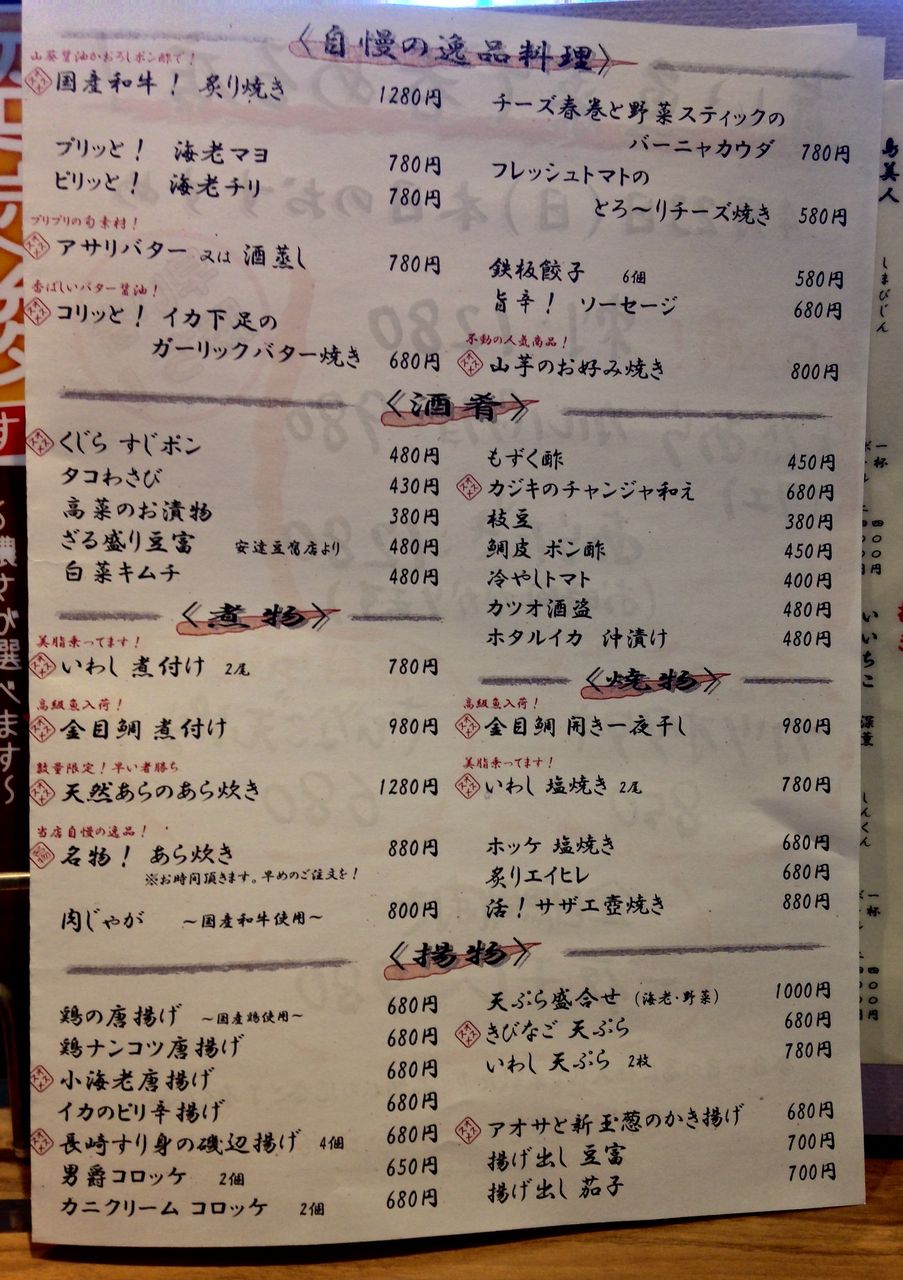 〈自慢の逸品料理〉
山葵醤油かおろしポン酢で！
オススメ 国産和牛！ 炙り焼き 1280円
プリッと！ 海老マヨ 780円
ピリッと！ 海老チリ 780円
プリプリの旬素材！
オススメ アサリバター 又は 酒蒸し 780円
香ばしいバター醤油！
オススメ コリッと！ イカ下足の
ガーリックバター焼き 680円
チーズ春巻と野菜スティックの
バーニャカウダ 780円
フレッシュトマトの
とろ〜りチーズ焼き 580円
鉄板餃子 6個 580円
旨辛！ ソーセージ 680円
不動の人気商品！
オススメ 山芋のお好み焼き 800円
〈酒肴〉
オススメ くじら すじポン 480円
タコわさび 430円
高菜のお漬物 380円
ざる盛り豆富 安達豆富店より 480円
白菜キムチ 480円
もずく酢 450円
オススメ カジキのチャンジャ和え 680円
枝豆 380円
鯛皮 ポン酢 450円
冷やしトマト 400円
カツオ酒盗 480円
ホタルイカ 沖漬け 480円
〈煮物〉
美脂乗ってます！
オススメ いわし 煮付け 2尾 780円
高級魚入荷！
オススメ 金目鯛 煮付け 980円
数量限定！早い者勝ち
オススメ 天然あらのあら炊き 1280円
当店自慢の逸品！
名物！ あら炊き 880円
※お時間頂きます。早めのご注文を！
肉じゃが 〜国産和牛使用〜 800円
〈焼物〉
高級魚入荷！
オススメ 金目鯛 開き一夜干し 980円
美脂乗ってます！
オススメ いわし 塩焼き 2尾 780円
ホッケ 塩焼き 680円
炙りエイヒレ 680円
活！サザエ壺焼き 880円
〈揚物〉
鶏の唐揚げ 〜国産鶏使用〜 680円
鶏ナンコツ唐揚げ 680円
オススメ 小海老唐揚げ 680円
イカのピリ辛揚げ 680円
オススメ 長崎すり身の磯辺揚げ 4個 680円
男爵コロッケ 2個 650円
カニクリーム コロッケ 2個 680円
天ぷら盛合せ（海老・野菜） 1000円
オススメ きびなご 天ぷら 680円
いわし 天ぷら 2枚 780円
オススメ アオサと新玉葱のかき揚げ 680円
揚げ出し 豆富 700円
揚げ出し 茄子 700円
島美人
しまびじん
一杯
四〇〇円
いいちこ
深薫
しんくん
一杯
四〇〇円
す
び選べます〜